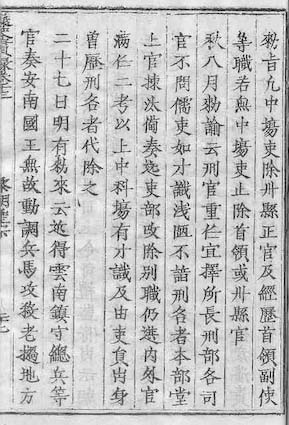 勑旨凡中塲吏除州縣正官及經歷首領副使
等職若無中塲吏止除首領或州縣官
秋八月勑諭云刑官重任宜擇所長刑部各司
官不問儒吏如才識淺陋不諳刑名者本部堂
上官揀汰備奏送吏部改除別職仍選內外官
滿任二考以上中科塲有才識及由吏員出身
曾歷刑名者代除之
二十七日明有勑來云近得雲南鎮守總兵等
官奏安南國王無故動調兵馬攻殺老撾地方